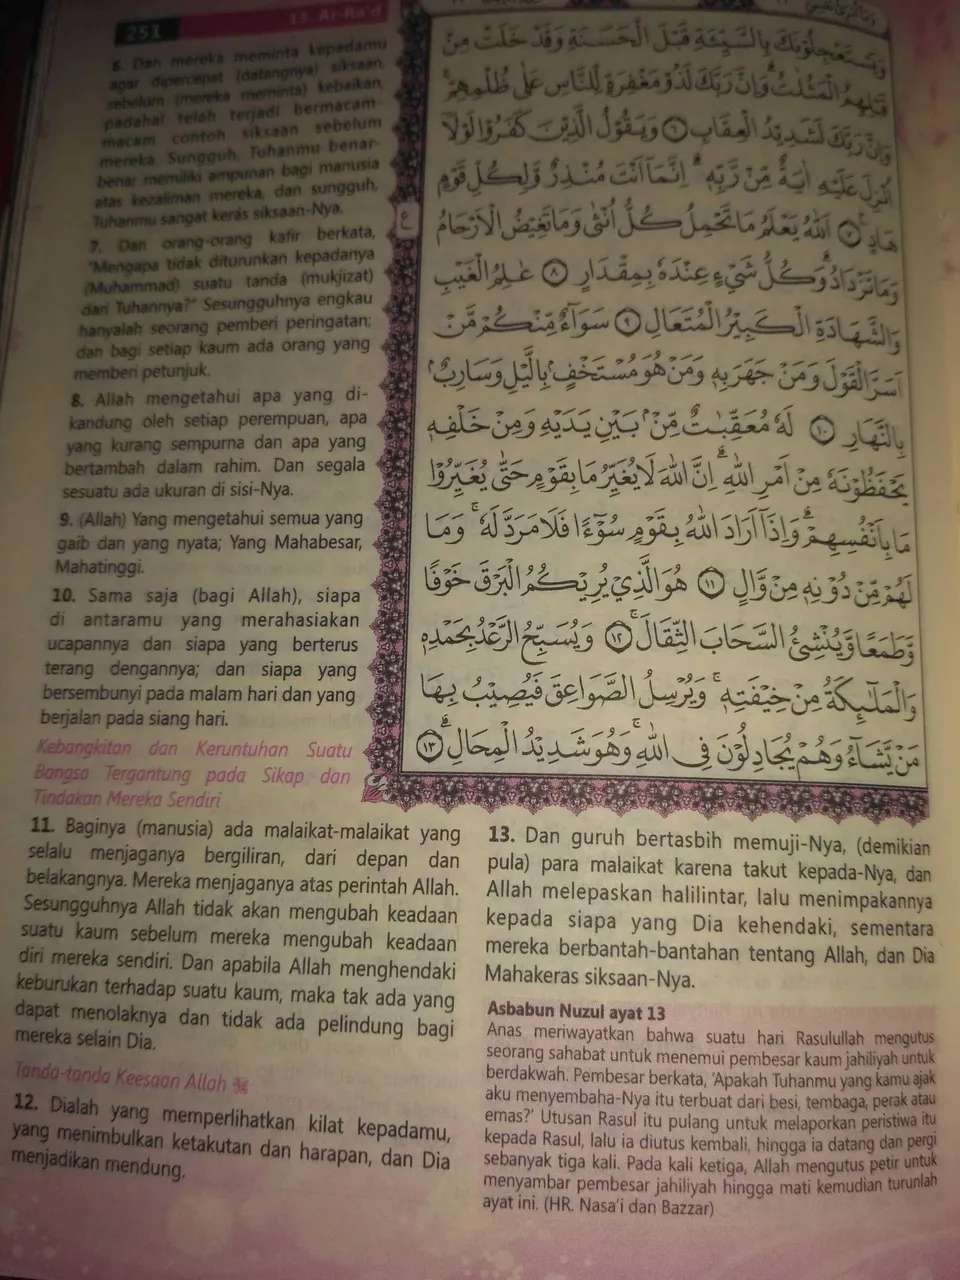 251
13. Ar-Ra'd
6. Dan mereka meminta kepadamu
agar dipercepat (datangnya) siksaan,
sebelum (mereka meminta) kebaikan,
padahal telah terjadi bermacam-
macam contoh siksaan sebelum
mereka. Sungguh, Tuhanmu benar-
benar memiliki ampunan bagi manusia
atas kezaliman mereka, dan sungguh,
Tuhanmu sangat keras siksaan-Nya.
7. Dan orang-orang kafir berkata,
"Mengapa tidak diturunkan kepadanya
(Muhammad) suatu tanda (mukjizat)
dari Tuhannya?" Sesungguhnya engkau
hanyalah seorang pemberi peringatan;
dan bagi setiap kaum ada orang yang
memberi petunjuk.
8. Allah mengetahui apa yang di-
kandung oleh setiap perempuan, apa
yang kurang sempurna dan apa yang
bertambah dalam rahim. Dan segala
sesuatu ada ukuran di sisi-Nya.
9. (Allah) Yang mengetahui semua yang
gaib dan yang nyata; Yang Mahabesar,
Mahatinggi.
10. Sama saja (bagi Allah), siapa
di antaramu yang merahasiakan
ucapannya dan siapa yang berterus
terang dengannya; dan siapa yang
bersembunyi pada malam hari dan yang
berjalan pada siang hari.
Kebangkitan dan Keruntuhan Suatu
Bangsa Tergantung pada Sikap dan
Tindakan Mereka Sendiri
وَيَسْتَعْجِلُوْنَكَ بِالسَّيِّئَةِ قَبْلَ الْحَسَنَةِ وَقَدْ خَلَتْ مِنْ
قَبْلِهِمُ الْمَثُلٰتُۗ وَاِنَّ رَبَّكَ لَذُوْ مَغْفِرَةٍ لِّلنَّاسِ عَلٰى ظُلْمِهِمْۚ
وَاِنَّ رَبَّكَ لَشَدِيْدُ الْعِقَابِ ٦ وَيَقُوْلُ الَّذِيْنَ كَفَرُوْا لَوْلَآ
اُنْزِلَ عَلَيْهِ اٰيَةٌ مِّنْ رَّبِّهٖۗ اِنَّمَآ اَنْتَ مُنْذِرٌ وَّلِكُلِّ قَوْمٍ
هَادٍ ٧ اَللّٰهُ يَعْلَمُ مَا تَحْمِلُ كُلُّ اُنْثٰى وَمَا تَغِيْضُ الْاَرْحَامُ
وَمَا تَزْدَادُۗ وَكُلُّ شَيْءٍ عِنْدَهٗ بِمِقْدَارٍ ٨ عٰلِمُ الْغَيْبِ
وَالشَّهَادَةِ الْكَبِيْرُ الْمُتَعَالِ ٩ سَوَاۤءٌ مِّنْكُمْ مَّنْ
اَسَرَّ الْقَوْلَ وَمَنْ جَهَرَ بِهٖ وَمَنْ هُوَ مُسْتَخْفٍۢ بِالَّيْلِ وَسَارِبٌۢ
بِالنَّهَارِ ١٠ لَهٗ مُعَقِّبٰتٌ مِّنْۢ بَيْنِ يَدَيْهِ وَمِنْ خَلْفِهٖ
يَحْفَظُوْنَهٗ مِنْ اَمْرِ اللّٰهِۗ اِنَّ اللّٰهَ لَا يُغَيِّرُ مَا بِقَوْمٍ حَتّٰى يُغَيِّرُوْا
مَا بِاَنْفُسِهِمْۗ وَاِذَآ اَرَادَ اللّٰهُ بِقَوْمٍ سُوْۤءًا فَلَا مَرَدَّ لَهٗۚ وَمَا
لَهُمْ مِّنْ دُوْنِهٖ مِنْ وَّالٍ ١١ هُوَ الَّذِيْ يُرِيْكُمُ الْبَرْقَ خَوْفًا
وَّطَمَعًا وَّيُنْشِئُ السَّحَابَ الثِّقَالَۚ ١٢ وَيُسَبِّحُ الرَّعْدُ بِحَمْدِهٖ
وَالْمَلٰۤىِٕكَةُ مِنْ خِيْفَتِهٖۚ وَيُرْسِلُ الصَّوَاعِقَ فَيُصِيْبُ بِهَا
مَنْ يَّشَاۤءُ وَهُمْ يُجَادِلُوْنَ فِى اللّٰهِۚ وَهُوَ شَدِيْدُ الْمِحَالِۗ ١٣
ع
11. Baginya (manusia) ada malaikat-malaikat yang
selalu menjaganya bergiliran, dari depan dan
belakangnya. Mereka menjaganya atas perintah Allah.
Sesungguhnya Allah tidak akan mengubah keadaan
suatu kaum sebelum mereka mengubah keadaan
diri mereka sendiri. Dan apabila Allah menghendaki
keburukan terhadap suatu kaum, maka tak ada yang
dapat menolaknya dan tidak ada pelindung bagi
mereka selain Dia.
Tanda-tanda Keesaan Allah ﷻ
12. Dialah yang memperlihatkan kilat kepadamu,
yang menimbulkan ketakutan dan harapan, dan Dia
menjadikan mendung.
13. Dan guruh bertasbih memuji-Nya, (demikian
pula) para malaikat karena takut kepada-Nya, dan
Allah melepaskan halilintar, lalu menimpakannya
kepada siapa yang Dia kehendaki, sementara
mereka berbantah-bantahan tentang Allah, dan Dia
Mahakeras siksaan-Nya.
Asbabun Nuzul ayat 13
Anas meriwayatkan bahwa suatu hari Rasulullah mengutus
seorang sahabat untuk menemui pembesar kaum jahiliyah untuk
berdakwah. Pembesar berkata, 'Apakah Tuhanmu yang kamu ajak
aku menyembaha-Nya itu terbuat dari besi, tembaga, perak atau
emas?' Utusan Rasul itu pulang untuk melaporkan peristiwa itu
kepada Rasul, lalu ia diutus kembali, hingga ia datang dan pergi
sebanyak tiga kali. Pada kali ketiga, Allah mengutus petir untuk
menyambar pembesar jahiliyah hingga mati kemudian turunlah
ayat ini. (HR. Nasa'i dan Bazzar)